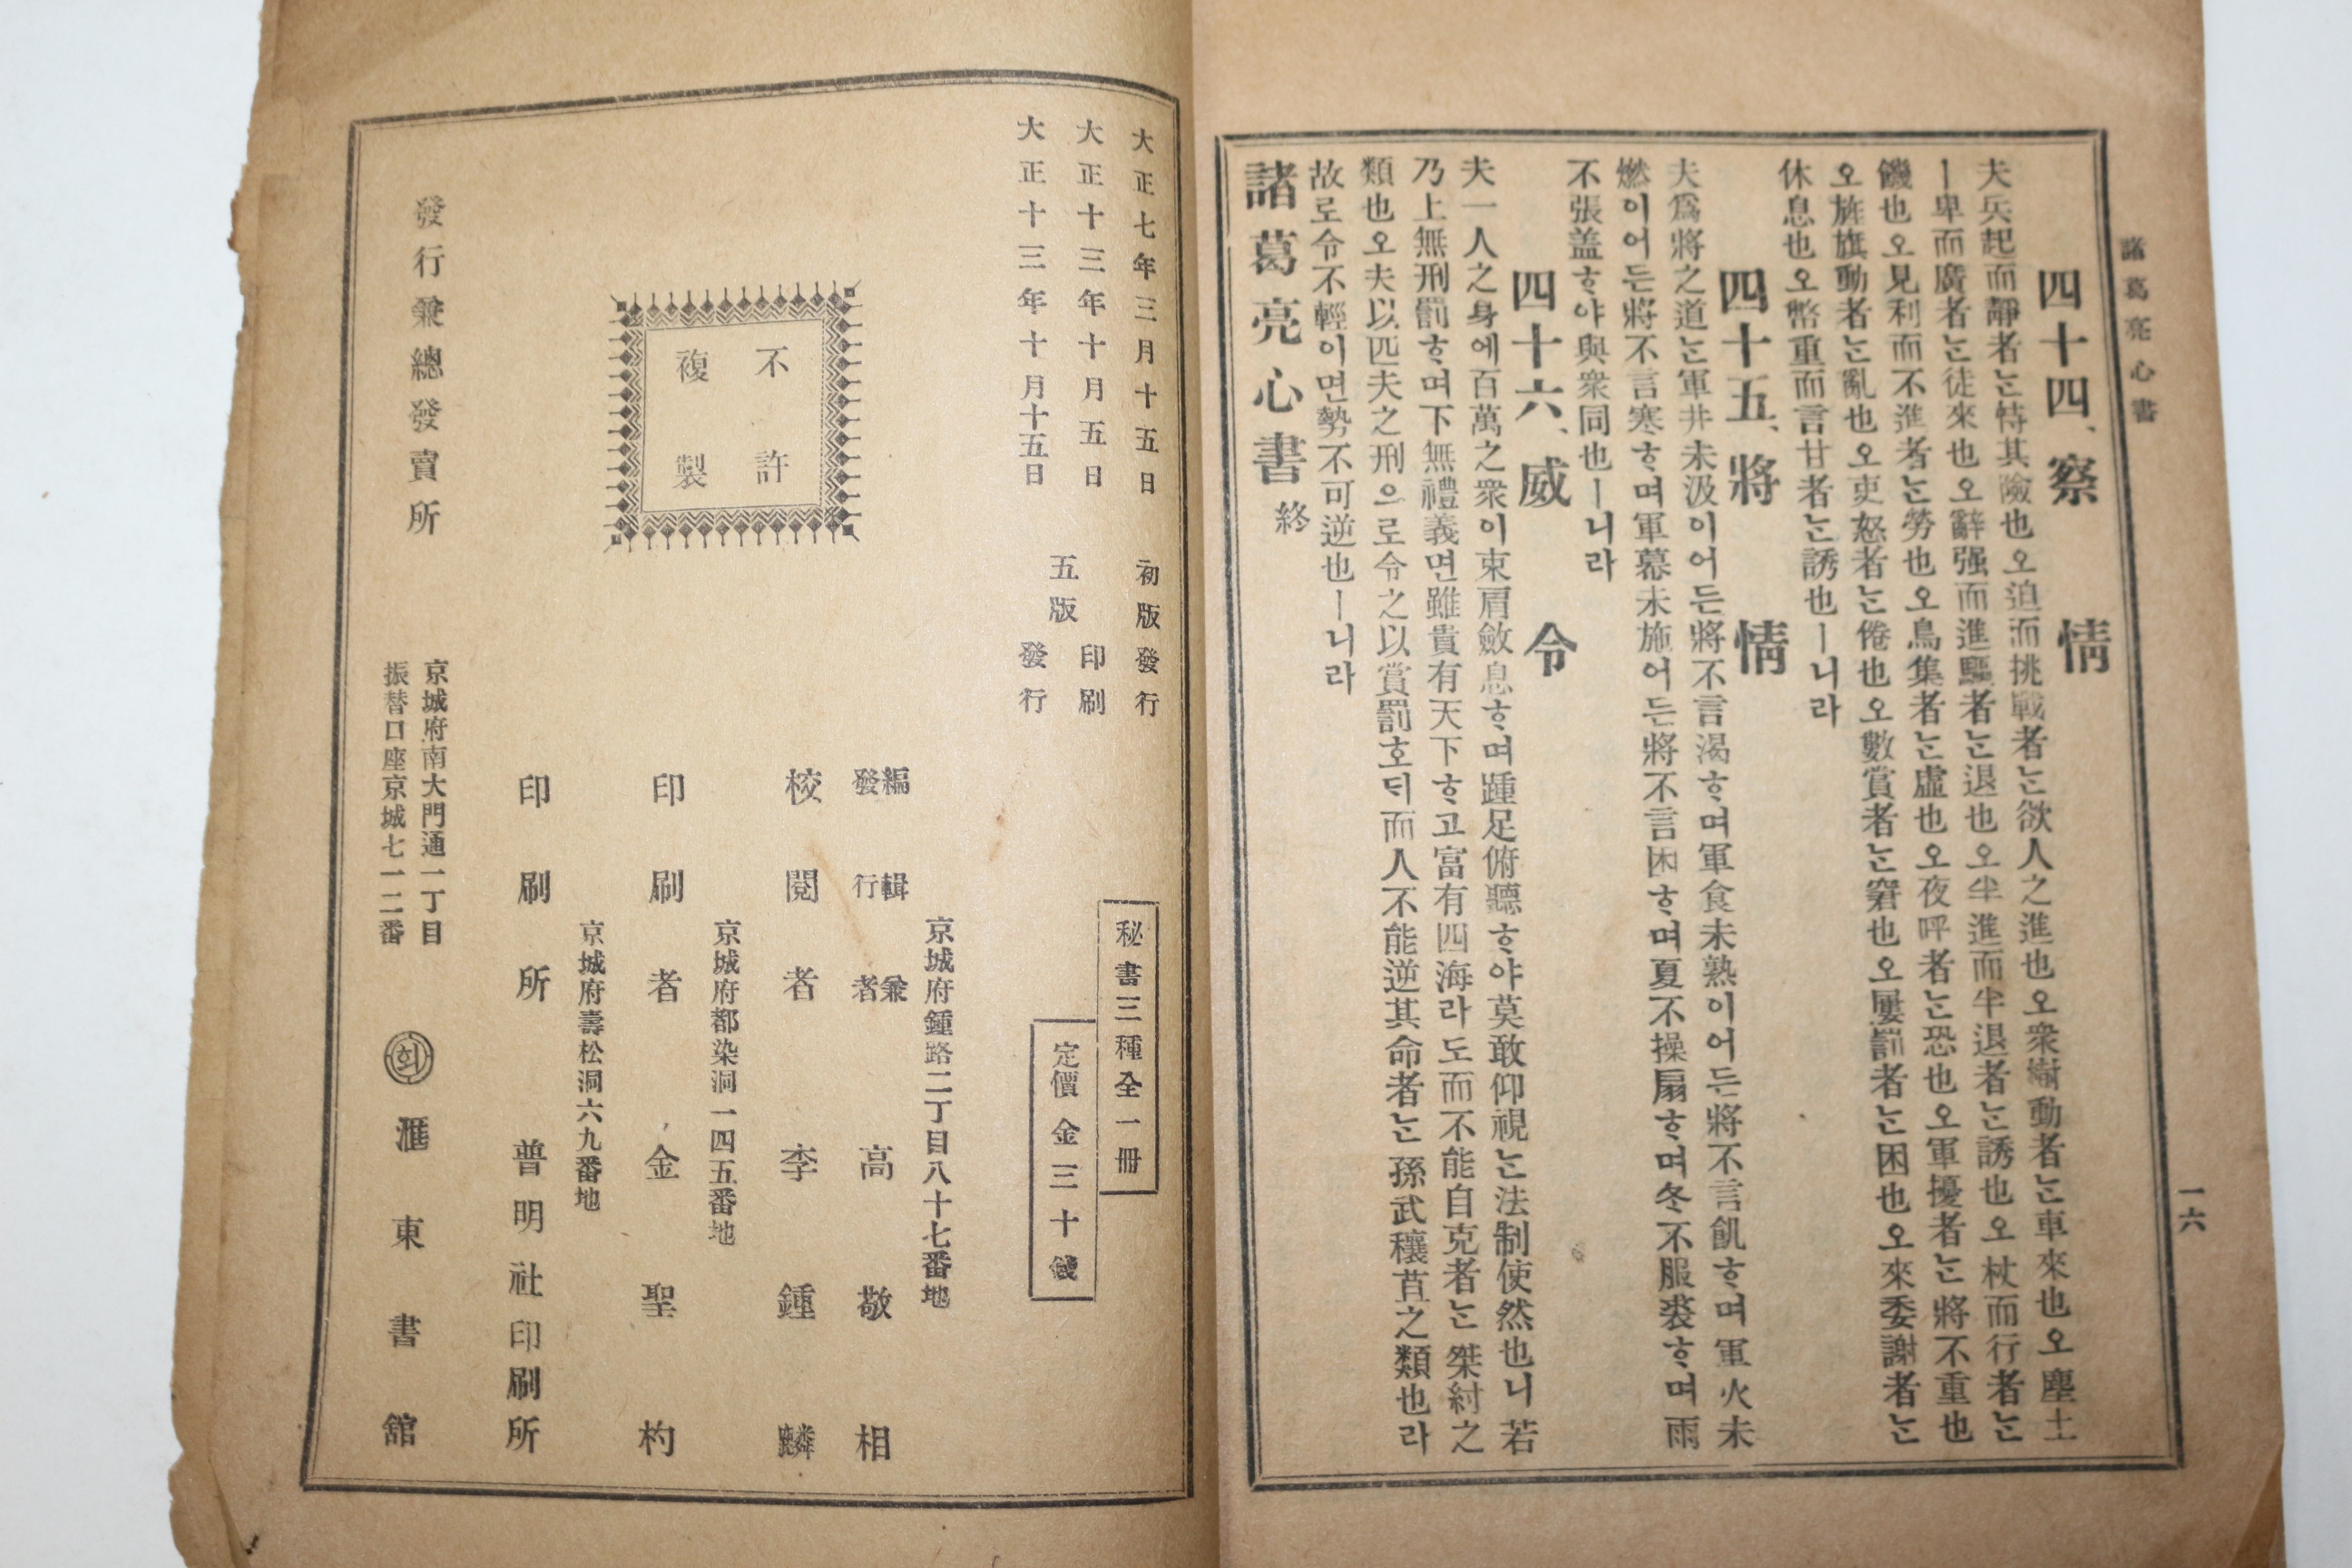 諸葛亮心書
一六
四十四、察情
夫兵起而靜者는恃其險也오迫而挑戰者는欲人之進也오衆樹動者는車來也오塵土
ㅣ卑而廣者는徒來也오辭强而進驅者는退也오半進而半退者는誘也오杖而行者는
饑也오見利而不進者는勞也오鳥集者는虛也오夜呼者는恐也오軍擾者는將不重也
오旌旗動者는亂也오吏怒者는倦也오數賞者는窘也오屢罰者는困也오來委謝者는
休息也오幣重而言甘者는誘也ㅣ니라
四十五、將情
夫爲將之道는軍井未汲이어든將不言渴ᄒᆞ며軍食未熟이어든將不言飢ᄒᆞ며軍火未
燃이어든將不言寒ᄒᆞ며軍幕未施어든將不言困ᄒᆞ며夏不操扇ᄒᆞ며冬不服裘ᄒᆞ며雨
不張盖ᄒᆞ야與衆同也ㅣ니라
四十六、威令
夫一人之身에百萬之衆이束肩斂息ᄒᆞ며踵足俯聽ᄒᆞ야莫敢仰視는法制使然也니若
乃上無刑罰ᄒᆞ며下無禮義면雖貴有天下ᄒᆞ고富有四海라도而不能自克者는桀紂之
類也오夫以匹夫之刑으로令之以賞罰호ᄃᆡ而人不能逆其命者는孫武穰苴之類也라
故로令不輕이면勢不可逆也ㅣ니라
諸葛亮心書終
大正七年三月十五日 初版發行
大正十三年十月五日 印刷
五版
大正十三年十月十五日 發行
秘書三種全一冊
定價金三十錢
不許
複製
京城府鍾路二丁目八十七番地
編輯兼
發行者 高敬相
校閱者 李鍾麟
京城府都染洞一四五番地
印刷者 金聖杓
京城府壽松洞六九番地
印刷所 普明社印刷所
發行兼總發賣所
京城府南大門通一丁目
振替口座京城七一二番
회
滙東書舘